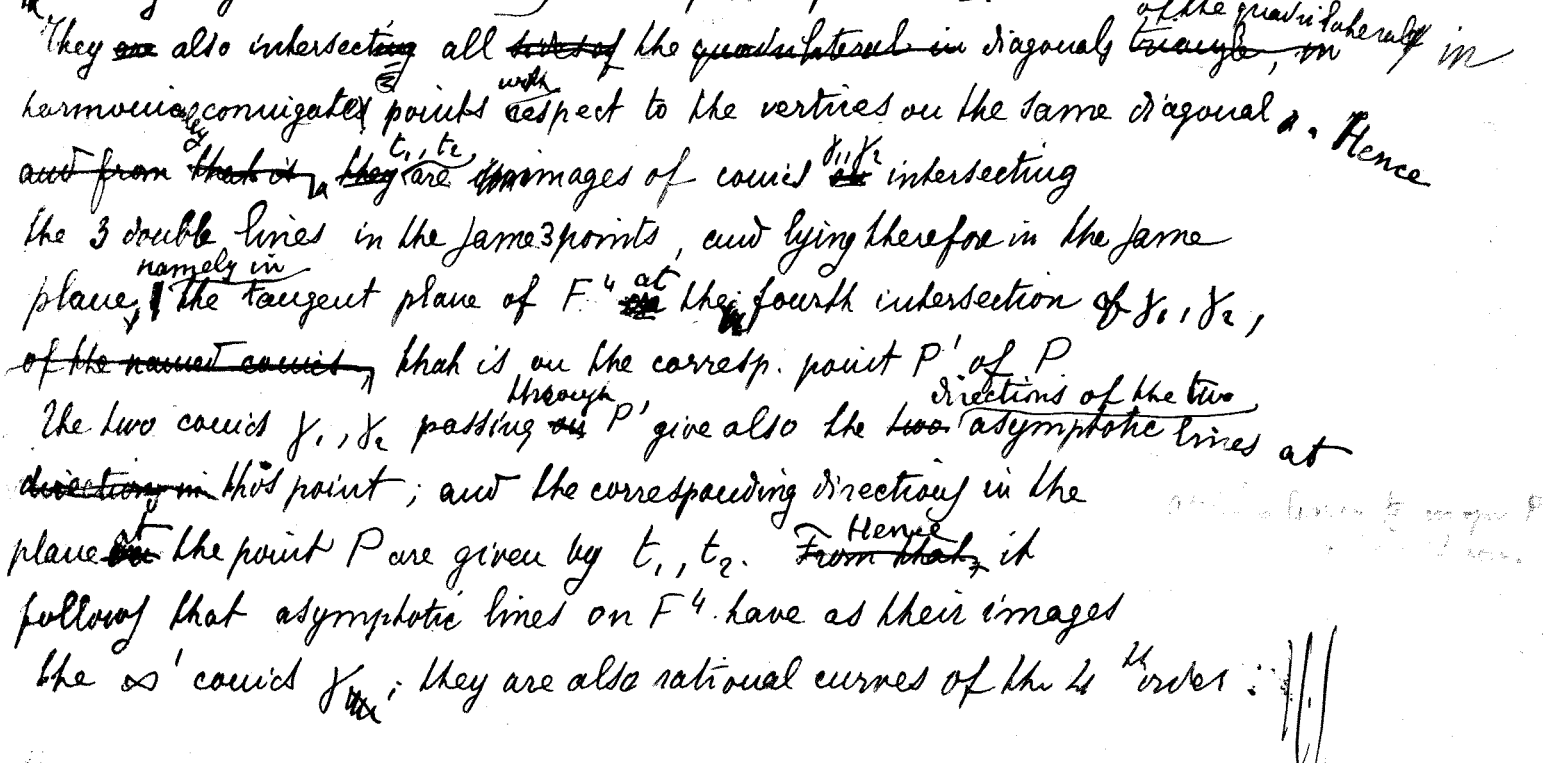 of the quadrilaterals
They also intersect all the diagonals in
harmonically conjugated points with respect to the vertices on the same diagonal. Hence
t₁, t₂ are images of conics γ₁, γ₂ intersecting
the 3 double lines in the same 3 points, and lying therefor in the same
plane, namely in the tangent plane of F⁴ at the fourth intersection of γ₁, γ₂,
that is on the corresp. point P' of P
The two conics γ₁, γ₂ passing through P' give also the directions of the two asymptotic lines at
this point; and the corresponding directions in the
plane at the point P are given by t₁, t₂. Hence it
follows that asymptotic lines on F⁴ have as their images
the ∞¹ conics γ; they are also rational curves of the 4th order.